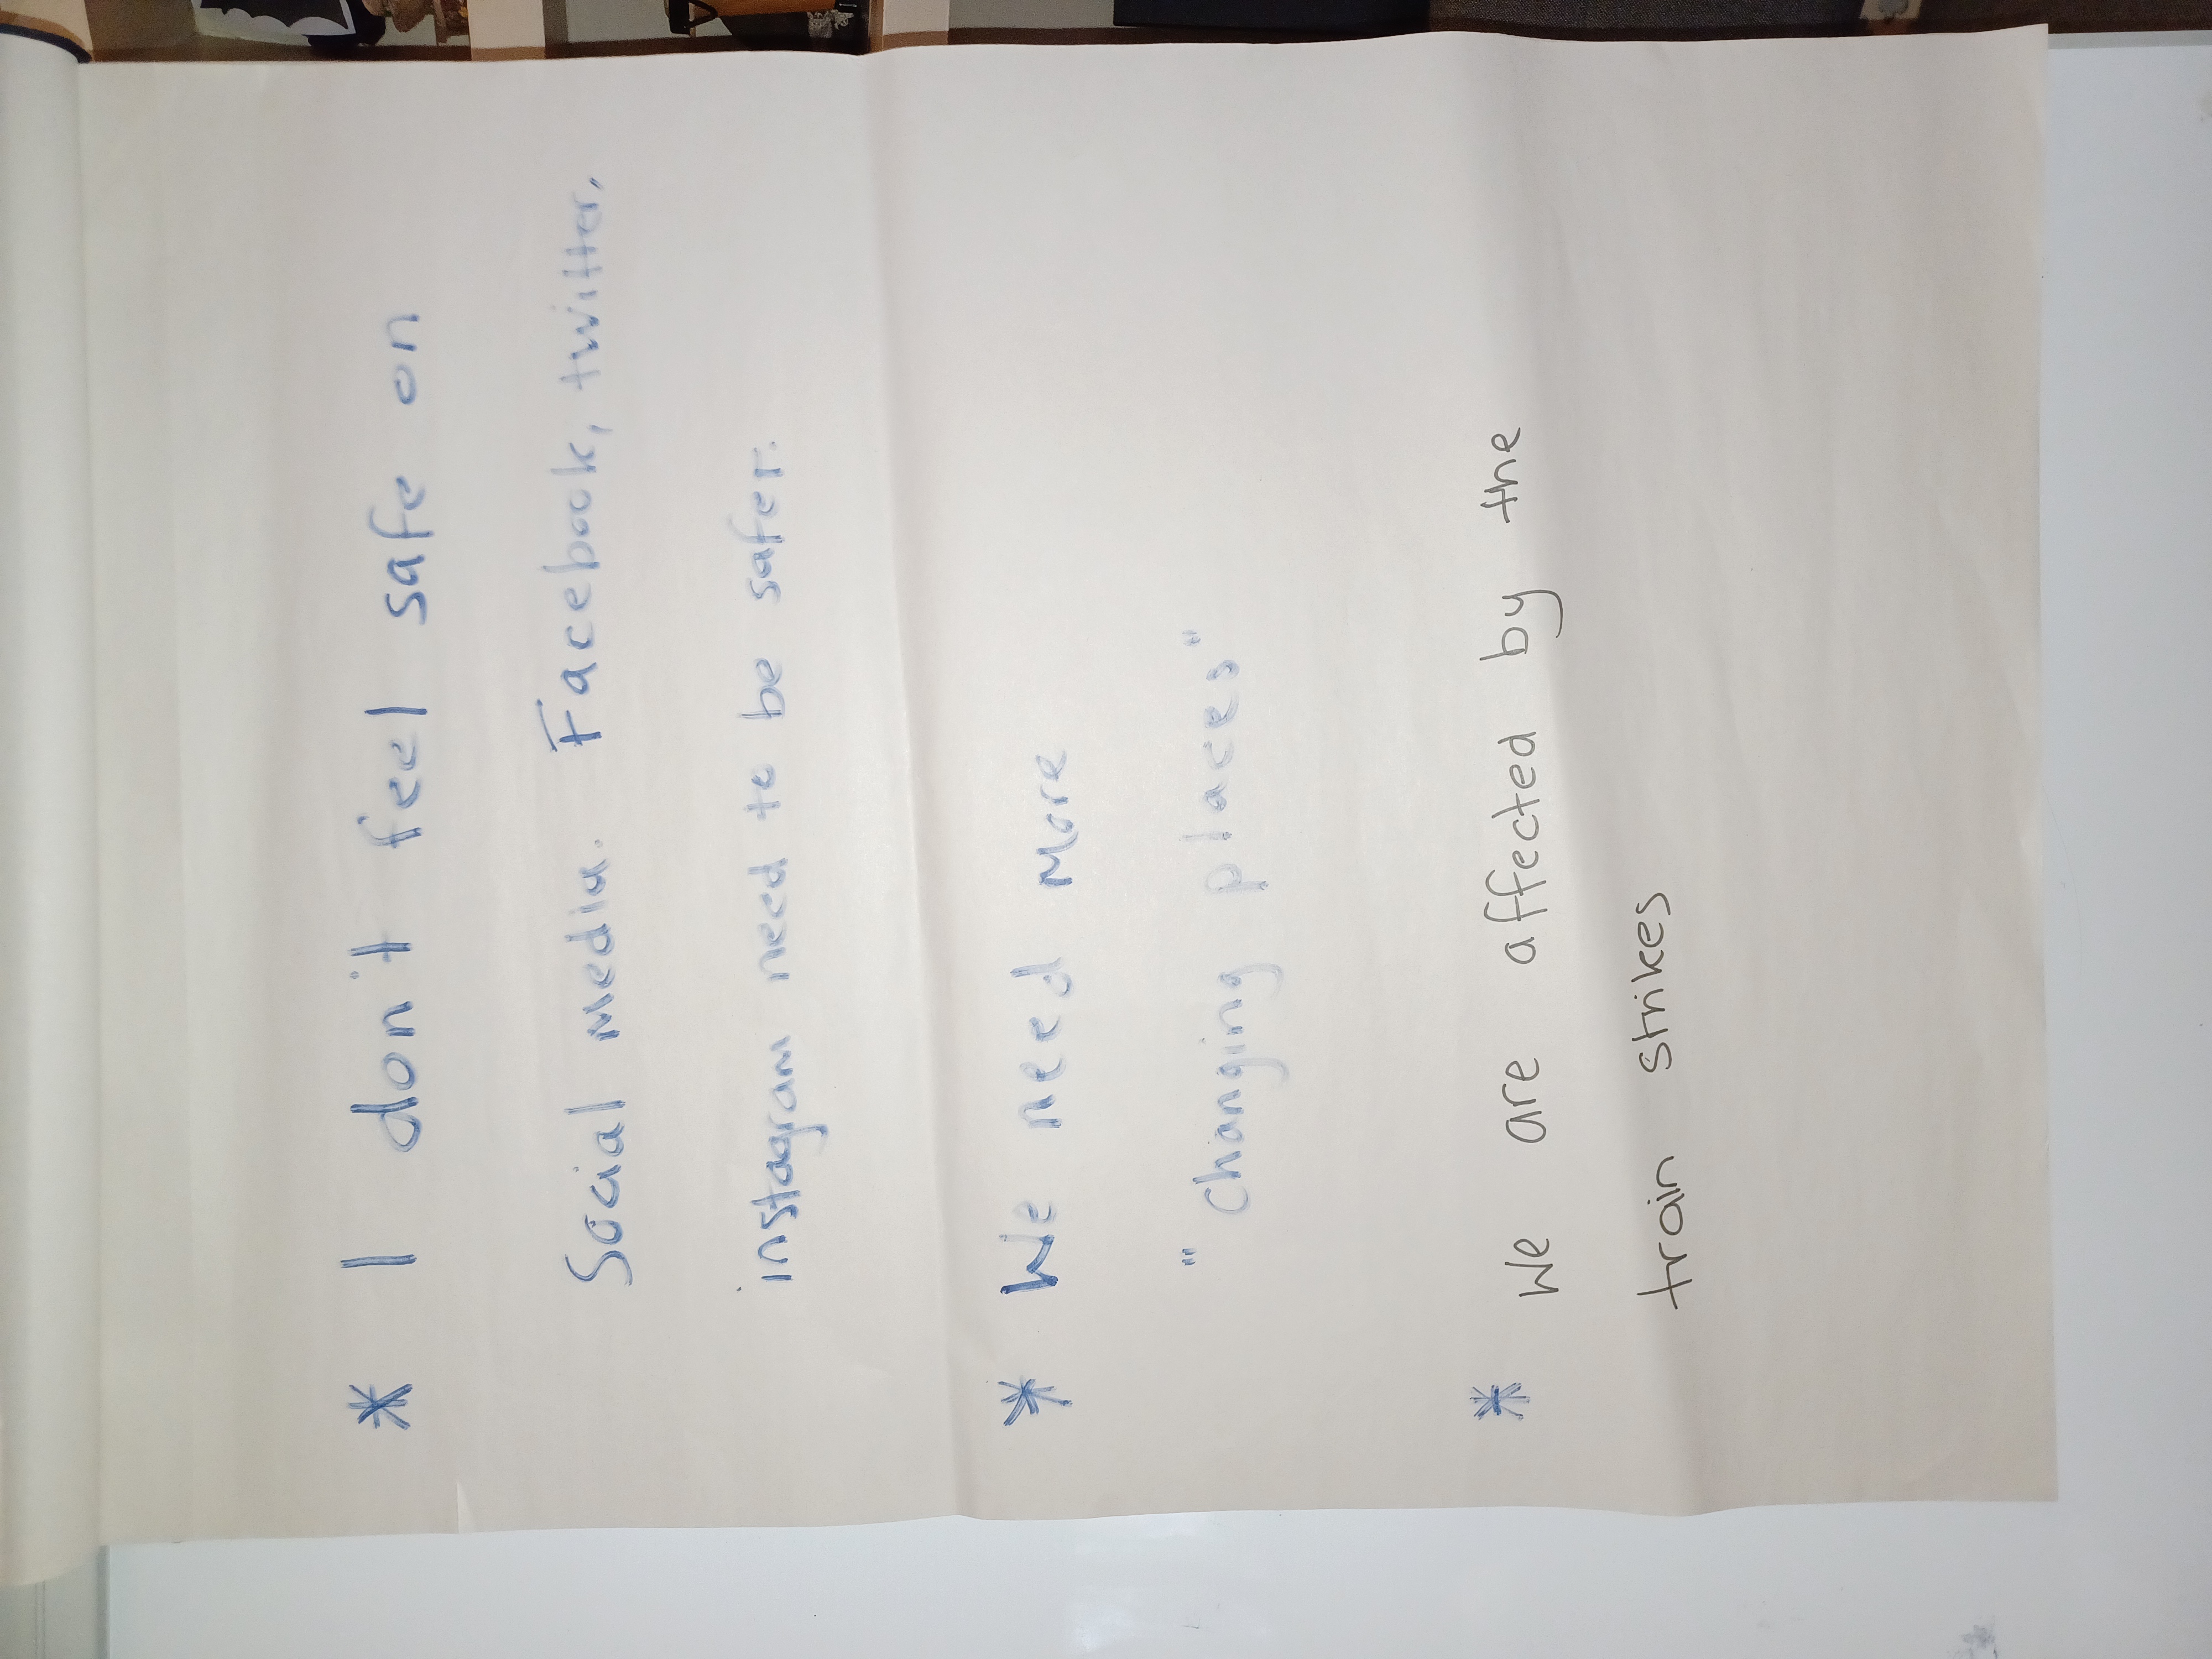 * I don't feel safe on
Social media. Facebook, twitter,
instagram need to be safer.
* We need More
"Changing places"
* We are affected by the
train strikes